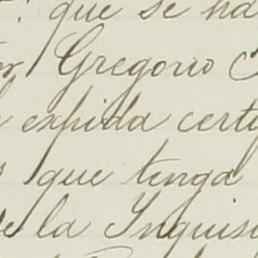 que se ha
Gregorio
expida certi
que tenga
de la Inquisi